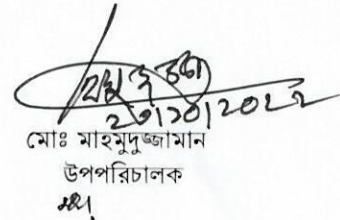 ২০/১০/২০২২
মোঃ মাহমুদুজ্জামান
উপপরিচালক